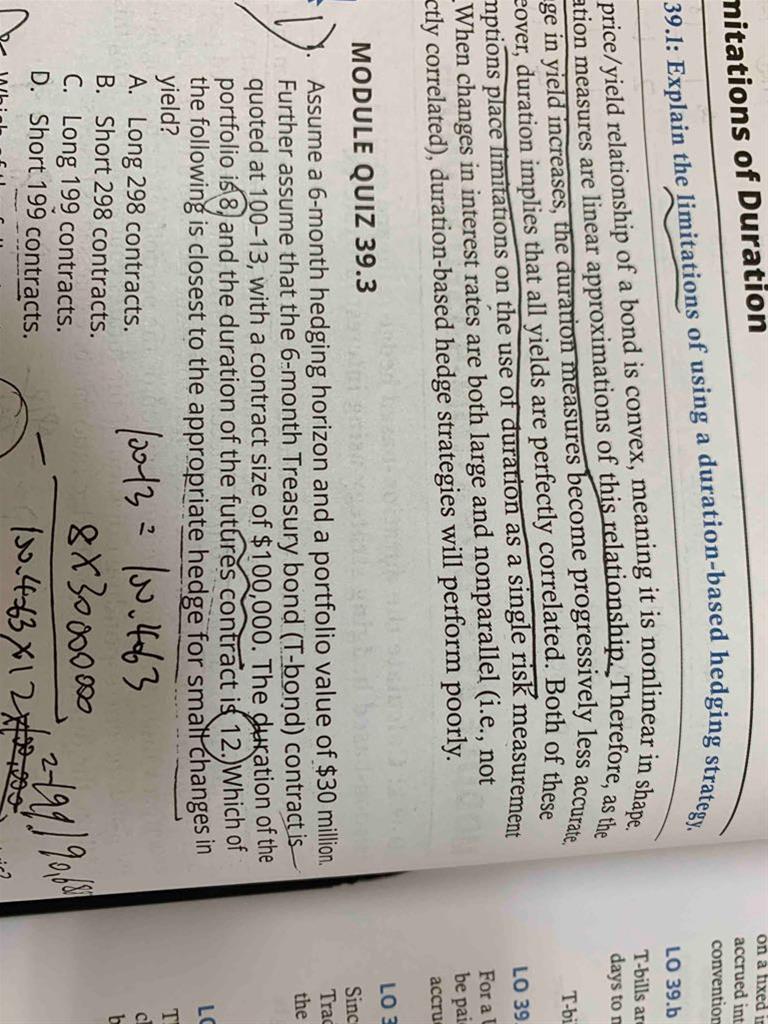 mitations of Duration
39.1: Explain the limitations of using a duration-based hedging strategy.
price/yield relationship of a bond is convex, meaning it is nonlinear in shape.
ation measures are linear approximations of this relationship. Therefore, as the
ge in yield increases, the duration measures become progressively less accurate.
eover, duration implies that all yields are perfectly correlated. Both of these
mptions place limitations on the use of duration as a single risk measurement
. When changes in interest rates are both large and nonparallel (i.e., not
ctly correlated), duration-based hedge strategies will perform poorly.
MODULE QUIZ 39.3
1. Assume a 6-month hedging horizon and a portfolio value of $30 million.
Further assume that the 6-month Treasury bond (T-bond) contract is
quoted at 100-13, with a contract size of $100,000. The duration of the
portfolio is 8, and the duration of the futures contract is 12. Which of
the following is closest to the appropriate hedge for small changes in
yield?
A. Long 298 contracts.
B. Short 298 contracts.
C. Long 199 contracts.
D. Short 199 contracts.
Which of
8×30000000
on a fixed i
accrued int
convention
LO 39.b
T-bills are
days to m
T-bi
LO 39
For a
be pai
accru
LO 3
Sinc
Trac
the
LO
T
cl
b